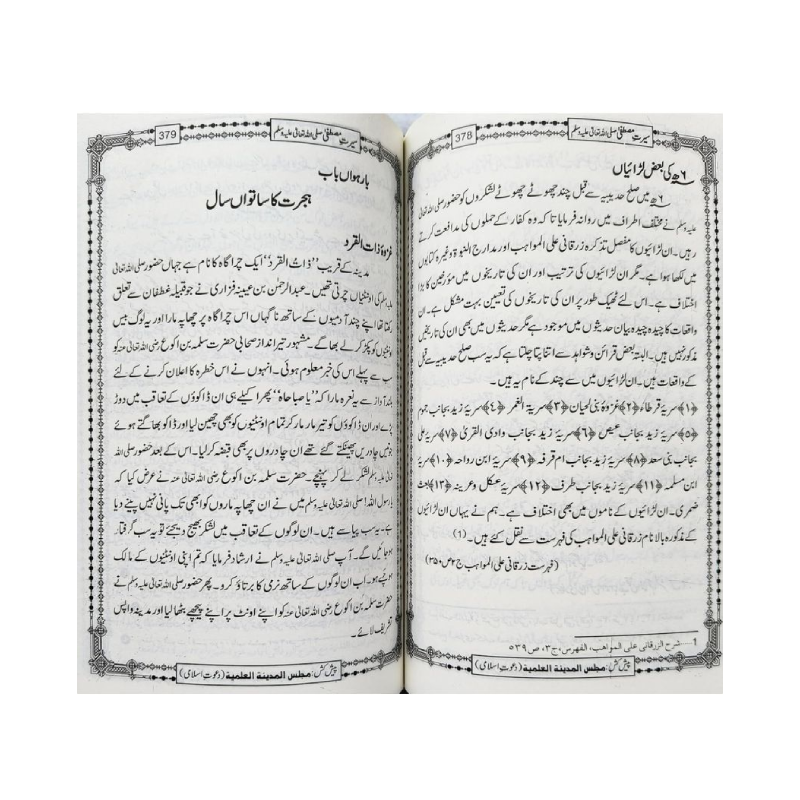 سیرتِ مصطفیٰ صلی اللہ تعالیٰ علیہ وسلم
378
۶ھ کی بعض لڑائیاں
۶ھ میں صلح حدیبیہ سے قبل چند چھوٹے چھوٹے لشکروں کو حضور صلی اللہ تعالیٰ
علیہ وسلم نے مختلف اطراف میں روانہ فرمایا تاکہ وہ کفار کے حملوں کی مدافعت کرتے
رہیں۔ ان لڑائیوں کا مفصل تذکرہ زرقانی علی المواہب اور مدارج النبوۃ وغیرہ کتابوں
میں لکھا ہوا ہے۔ مگر ان لڑائیوں کی ترتیب اور ان کی تاریخوں میں مؤرخین کا بڑا
اختلاف ہے۔ اس لئے ٹھیک طور پر ان کی تاریخوں کی تعیین بہت مشکل ہے۔ ان
واقعات کا چیدہ چیدہ بیان حدیثوں میں موجود ہے مگر حدیثوں میں بھی ان کی تاریخیں
مذکور نہیں ہیں۔ البتہ بعض قرائن و شواہد سے اتنا پتا چلتا ہے کہ یہ سب صلح حدیبیہ سے قبل
کے واقعات ہیں۔ ان لڑائیوں میں سے چند کے نام یہ ہیں۔
﴿۱﴾ سریۂ قرطاء ﴿۲﴾ غزوۂ بنی لحیان ﴿۳﴾ سریۃ الغمر ﴿۴﴾ سریۂ زید بجانب جموم
﴿۵﴾ سریۂ زید بجانب عیص ﴿۶﴾ سریۂ زید بجانب وادی القریٰ ﴿۷﴾ سریۂ علی
بجانب بنی سعد ﴿۸﴾ سریۂ زید بجانب ام قرفہ ﴿۹﴾ سریۂ ابن رواحہ ﴿۱۰﴾ سریۂ
ابن مسلمہ ﴿۱۱﴾ سریۂ زید بجانب طرف ﴿۱۲﴾ سریۂ عکل و عرینہ ﴿۱۳﴾ بعث
ضمری۔ ان لڑائیوں کے ناموں میں بھی اختلاف ہے۔ ہم نے یہاں ان لڑائیوں
کے مذکورہ بالا نام زرقانی علی المواہب کی فہرست سے نقل کئے ہیں۔ (1)
(فہرست زرقانی علی المواہب ج۲ ص۳۵۰)
1 ۔۔۔ شرح الزرقانی علی المواہب، الفہرس، ج۳، ص ۵۳۹
پیش کش: مجلس المدینة العلمیة (دعوتِ اسلامی)
سیرتِ مصطفیٰ صلی اللہ تعالیٰ علیہ وسلم
379
بارہواں باب
ہجرت کا ساتواں سال
غزوۂ ذات القرد
مدینہ کے قریب "ذات القرد" ایک چراگاہ کا نام ہے جہاں حضور صلی اللہ تعالیٰ
علیہ وسلم کی اونٹنیاں چرتی تھیں۔ عبدالرحمٰن بن عیینہ فزاری نے جو قبیلہ غطفان سے تعلق
رکھتا تھا اپنے چند آدمیوں کے ساتھ ناگہاں اس چراگاہ پر چھاپہ مارا اور یہ لوگ بیس
اونٹنیوں کو پکڑ کر لے بھاگے۔ مشہور تیر انداز صحابی حضرت سلمہ بن اکوع رضی اللہ تعالیٰ عنہ کو
سب سے پہلے اس کی خبر معلوم ہوئی۔ انہوں نے اس خطرہ کا اعلان کرنے کے لئے
بلند آواز سے یہ نعرہ مارا کہ "یا صباحاہ" پھر اکیلے ہی ان ڈاکوؤں کے تعاقب میں دوڑ
پڑے اور ان ڈاکوؤں کو تیر مار مار کر تمام اونٹنیوں کو بھی چھین لیا اور ڈاکو بھاگتے ہوئے جو
چادریں پھینکتے گئے تھے ان چادروں پر بھی قبضہ کر لیا۔ اس کے بعد حضور صلی اللہ
تعالیٰ علیہ وسلم لشکر لے کر پہنچے۔ حضرت سلمہ بن اکوع رضی اللہ تعالیٰ عنہ نے عرض کیا کہ
یارسول اللہ! صلی اللہ تعالیٰ علیہ وسلم میں نے ان چھاپہ ماروں کو ابھی تک پانی نہیں پینے دیا
ہے۔ یہ سب پیاسے ہیں۔ ان لوگوں کے تعاقب میں لشکر بھیج دیجئے تو یہ سب گرفتار
ہو جائیں گے۔ آپ صلی اللہ تعالیٰ علیہ وسلم نے ارشاد فرمایا کہ تم اپنی اونٹنیوں کے مالک
ہو چکے ہو۔ اب ان لوگوں کے ساتھ نرمی کا برتاؤ کرو۔ پھر حضور صلی اللہ تعالیٰ علیہ وسلم نے
حضرت سلمہ بن اکوع رضی اللہ تعالیٰ عنہ کو اپنے اونٹ پر اپنے پیچھے بٹھا لیا اور مدینہ واپس
تشریف لائے۔
پیش کش: مجلس المدینة العلمیة (دعوتِ اسلامی)